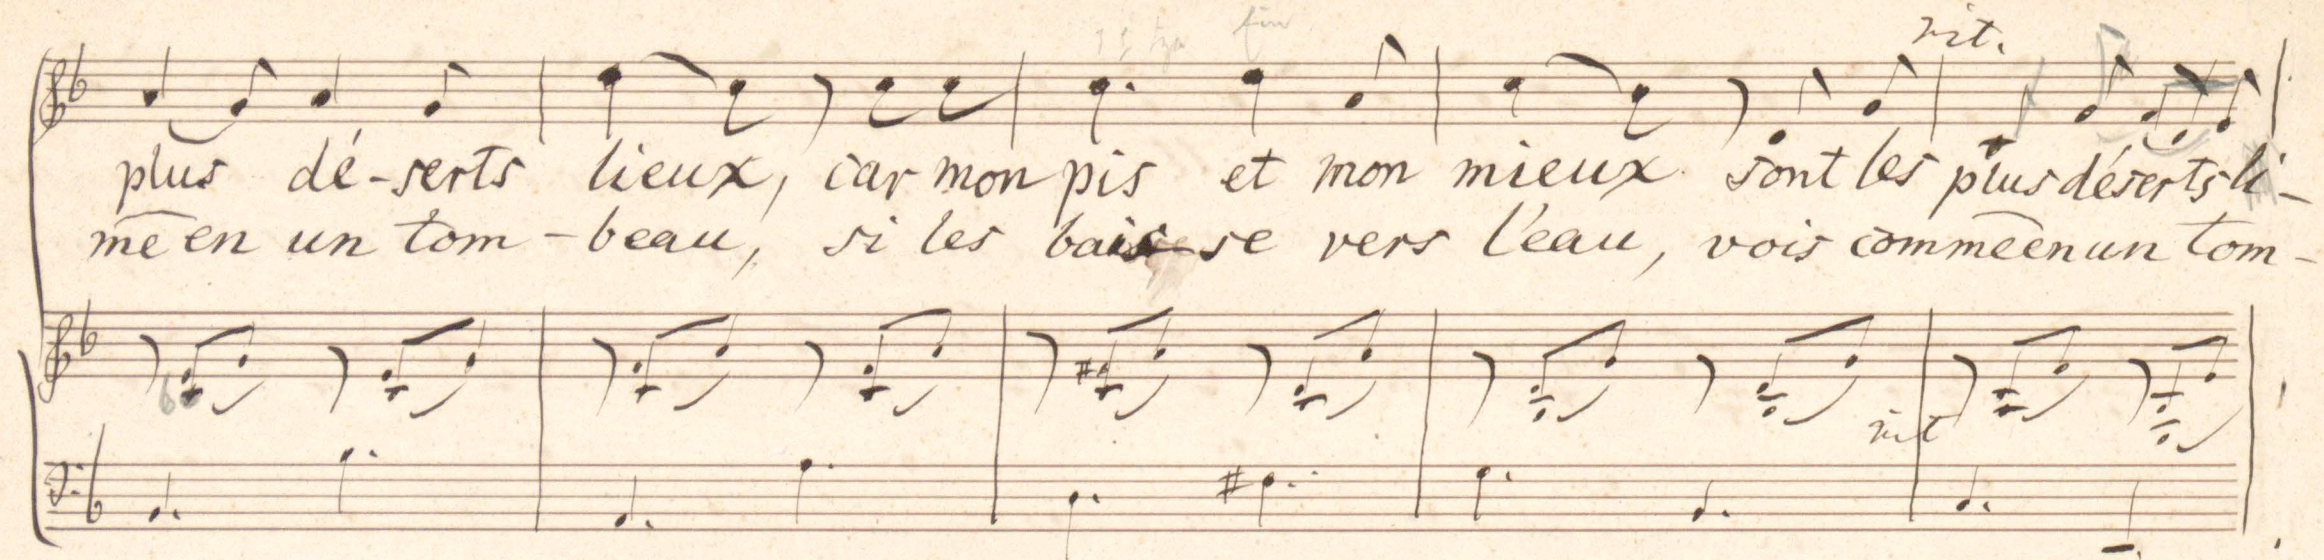 rit.
plus dé-serts lieux, car mon pis et mon mieux sont les plus déserts li-
me en un tom-beau, si les baisse vers l'eau, vois comme en un tom-
rit